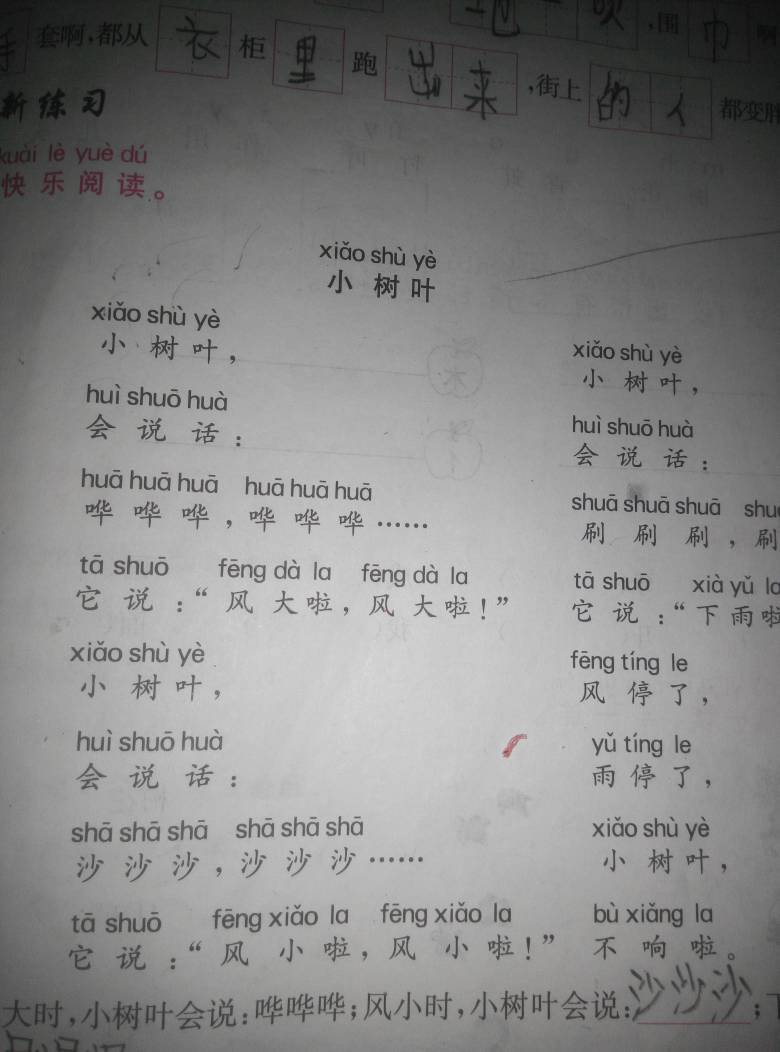 套啊，都从衣柜里跑出来，街上的人都变胖
新练习
kuài lè yuè dú
快乐阅读。
xiǎo shù yè
小树叶
xiǎo shù yè
小树叶，
huì shuō huà
会说话：
huā huā huā huā huā huā
哗哗哗，哗哗哗……
tā shuō fēng dà la fēng dà la
它说：“风大啦，风大啦！”
xiǎo shù yè
小树叶，
huì shuō huà
会说话：
shā shā shā shā shā shā
沙沙沙，沙沙沙……
tā shuō fēng xiǎo la fēng xiǎo la
它说：“风小啦，风小啦！”
xiǎo shù yè
小树叶，
huì shuō huà
会说话：
shuā shuā shuā
刷刷刷，刷
tā shuō xià yǔ
它说：“下雨啦
fēng tíng le
风停了，
yǔ tíng le
雨停了，
xiǎo shù yè
小树叶，
bù xiǎng la
不响啦。
大时，小树叶会说：哗哗哗；风小时，小树叶会说：沙沙沙；